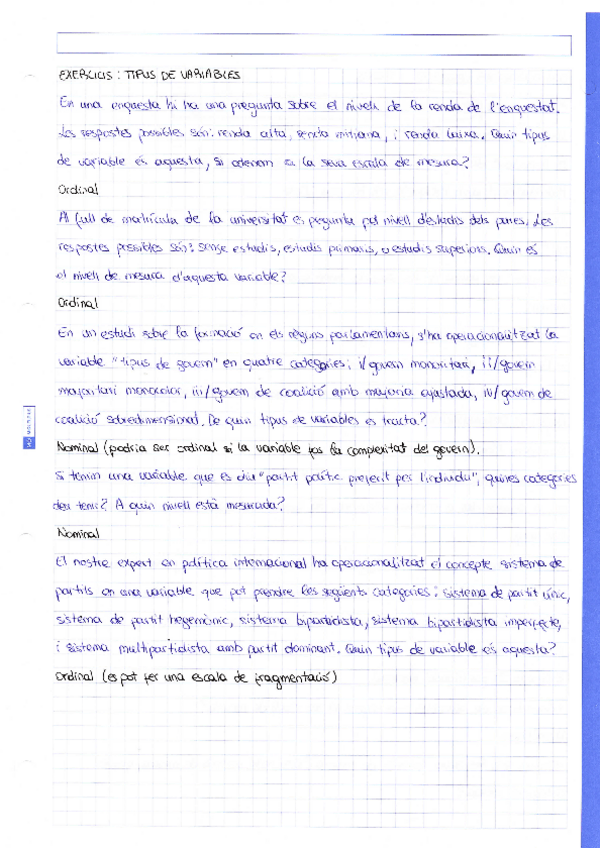 EXERCICIS: TIPUS DE VARIABLES
En una enquesta hi ha una pregunta sobre el nivell de la renda de l'enquestat.
Les respostes possibles són: renda alta, renda mitjana, i renda baixa. Quin tipus
de variable és aquesta, si atenem a la seva escala de mesura?
Ordinal
Al full de matrícula de la universitat es pregunta pel nivell d'estudis dels pares. Les
respostes possibles són: sense estudis, estudis primaris, o estudis superiors. Quin és
el nivell de mesura d'aquesta variable?
Ordinal
En un estudi sobre la formació en els règims parlamentaris, s'ha operacionalitzat la
variable "tipus de govern" en quatre categories: i/govern minoritari, ii/govern
majoritari monocolor, iii/govern de coalició amb majoria ajustada, iv/govern de
coalició sobredimensional. De quin tipus de variables es tracta?
Nominal (podria ser ordinal si la variable fos la complexitat del govern).
Si tenim una variable que es diu "partit polític preferit per l'individu", quines categories
deu tenir? A quin nivell està mesurada?
Nominal
El nostre expert en política internacional ha operacionalitzat el concepte sistema de
partits en una variable que pot prendre les següents categories: sistema de partit únic,
sistema de partit hegemònic, sistema bipartidista, sistema bipartidista imperfecte,
i sistema multipartidista amb partit dominant. Quin tipus de variable és aquesta?
Ordinal (es pot fer una escala de fragmentació)